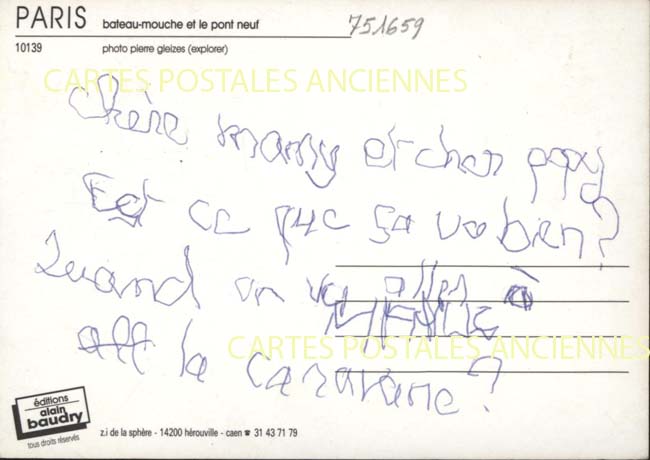 PARIS bateau-mouche et le pont neuf 751659
10139 photo pierre gleizes (explorer)
CARTES POSTALES ANCIENNES
Chère mamy et cher papy
Est ce que ça va bien?
Quand on va aller à
la caravane?
CARTES POSTALES ANCIENNES
éditions
alain
baudry
tous droits réservés
z.i de la sphère - 14200 hérouville - caen ☎ 31 43 71 79